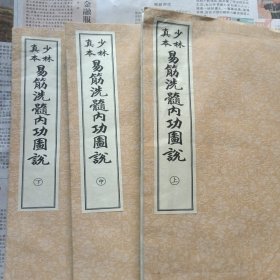 少林
真本
易筋洗髓內功圖說
上
少林
真本
易筋洗髓內功圖說
中
少林
真本
易筋洗髓內功圖說
下